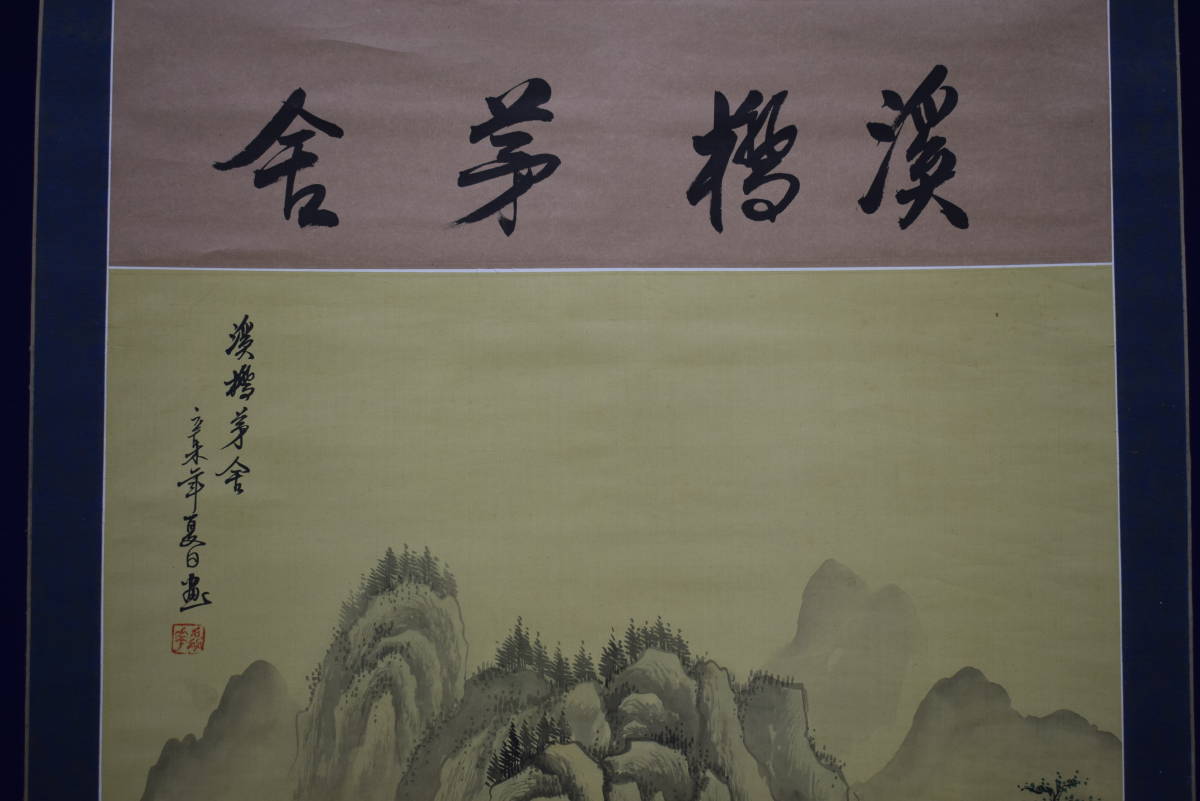 溪橋茅舍
溪橋茅舍
辛未年夏日畫